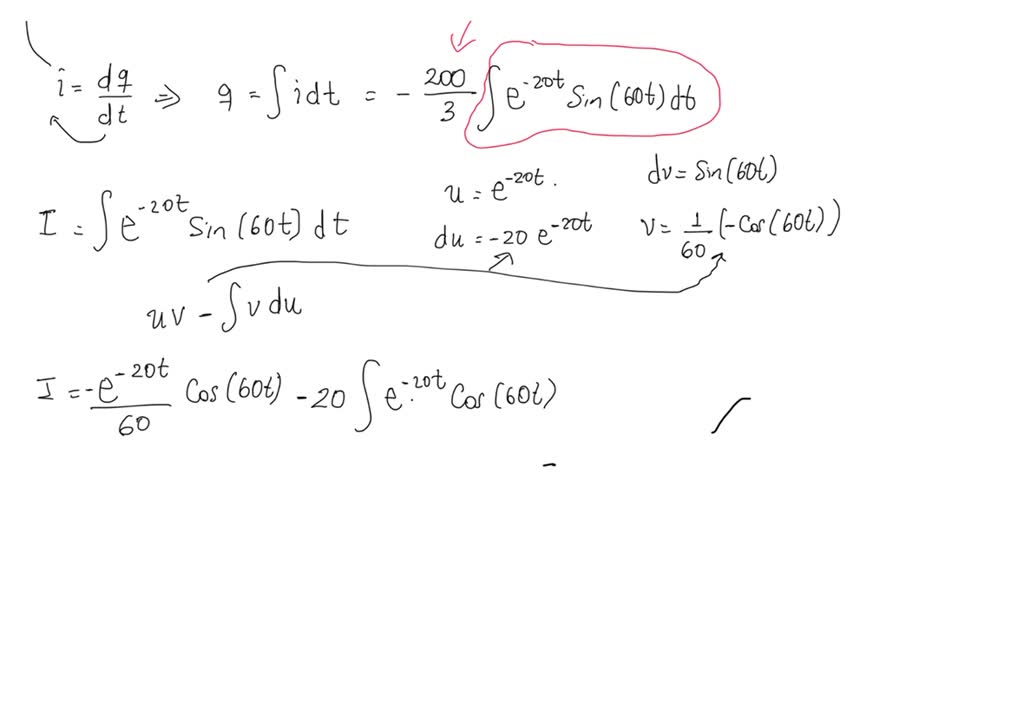 i = dq/dt ⇒ q = ∫ i dt = - 200/3 ∫ e^-20t Sin(60t) dt
I = ∫ e^-20t Sin(60t) dt u = e^-20t. dv = Sin(60t)
du = -20 e^-20t v = 1/60 (-Cos(60t))
uv - ∫ v du
I = -e^-20t/60 Cos(60t) - 20 ∫ e^-20t Cos(60t)